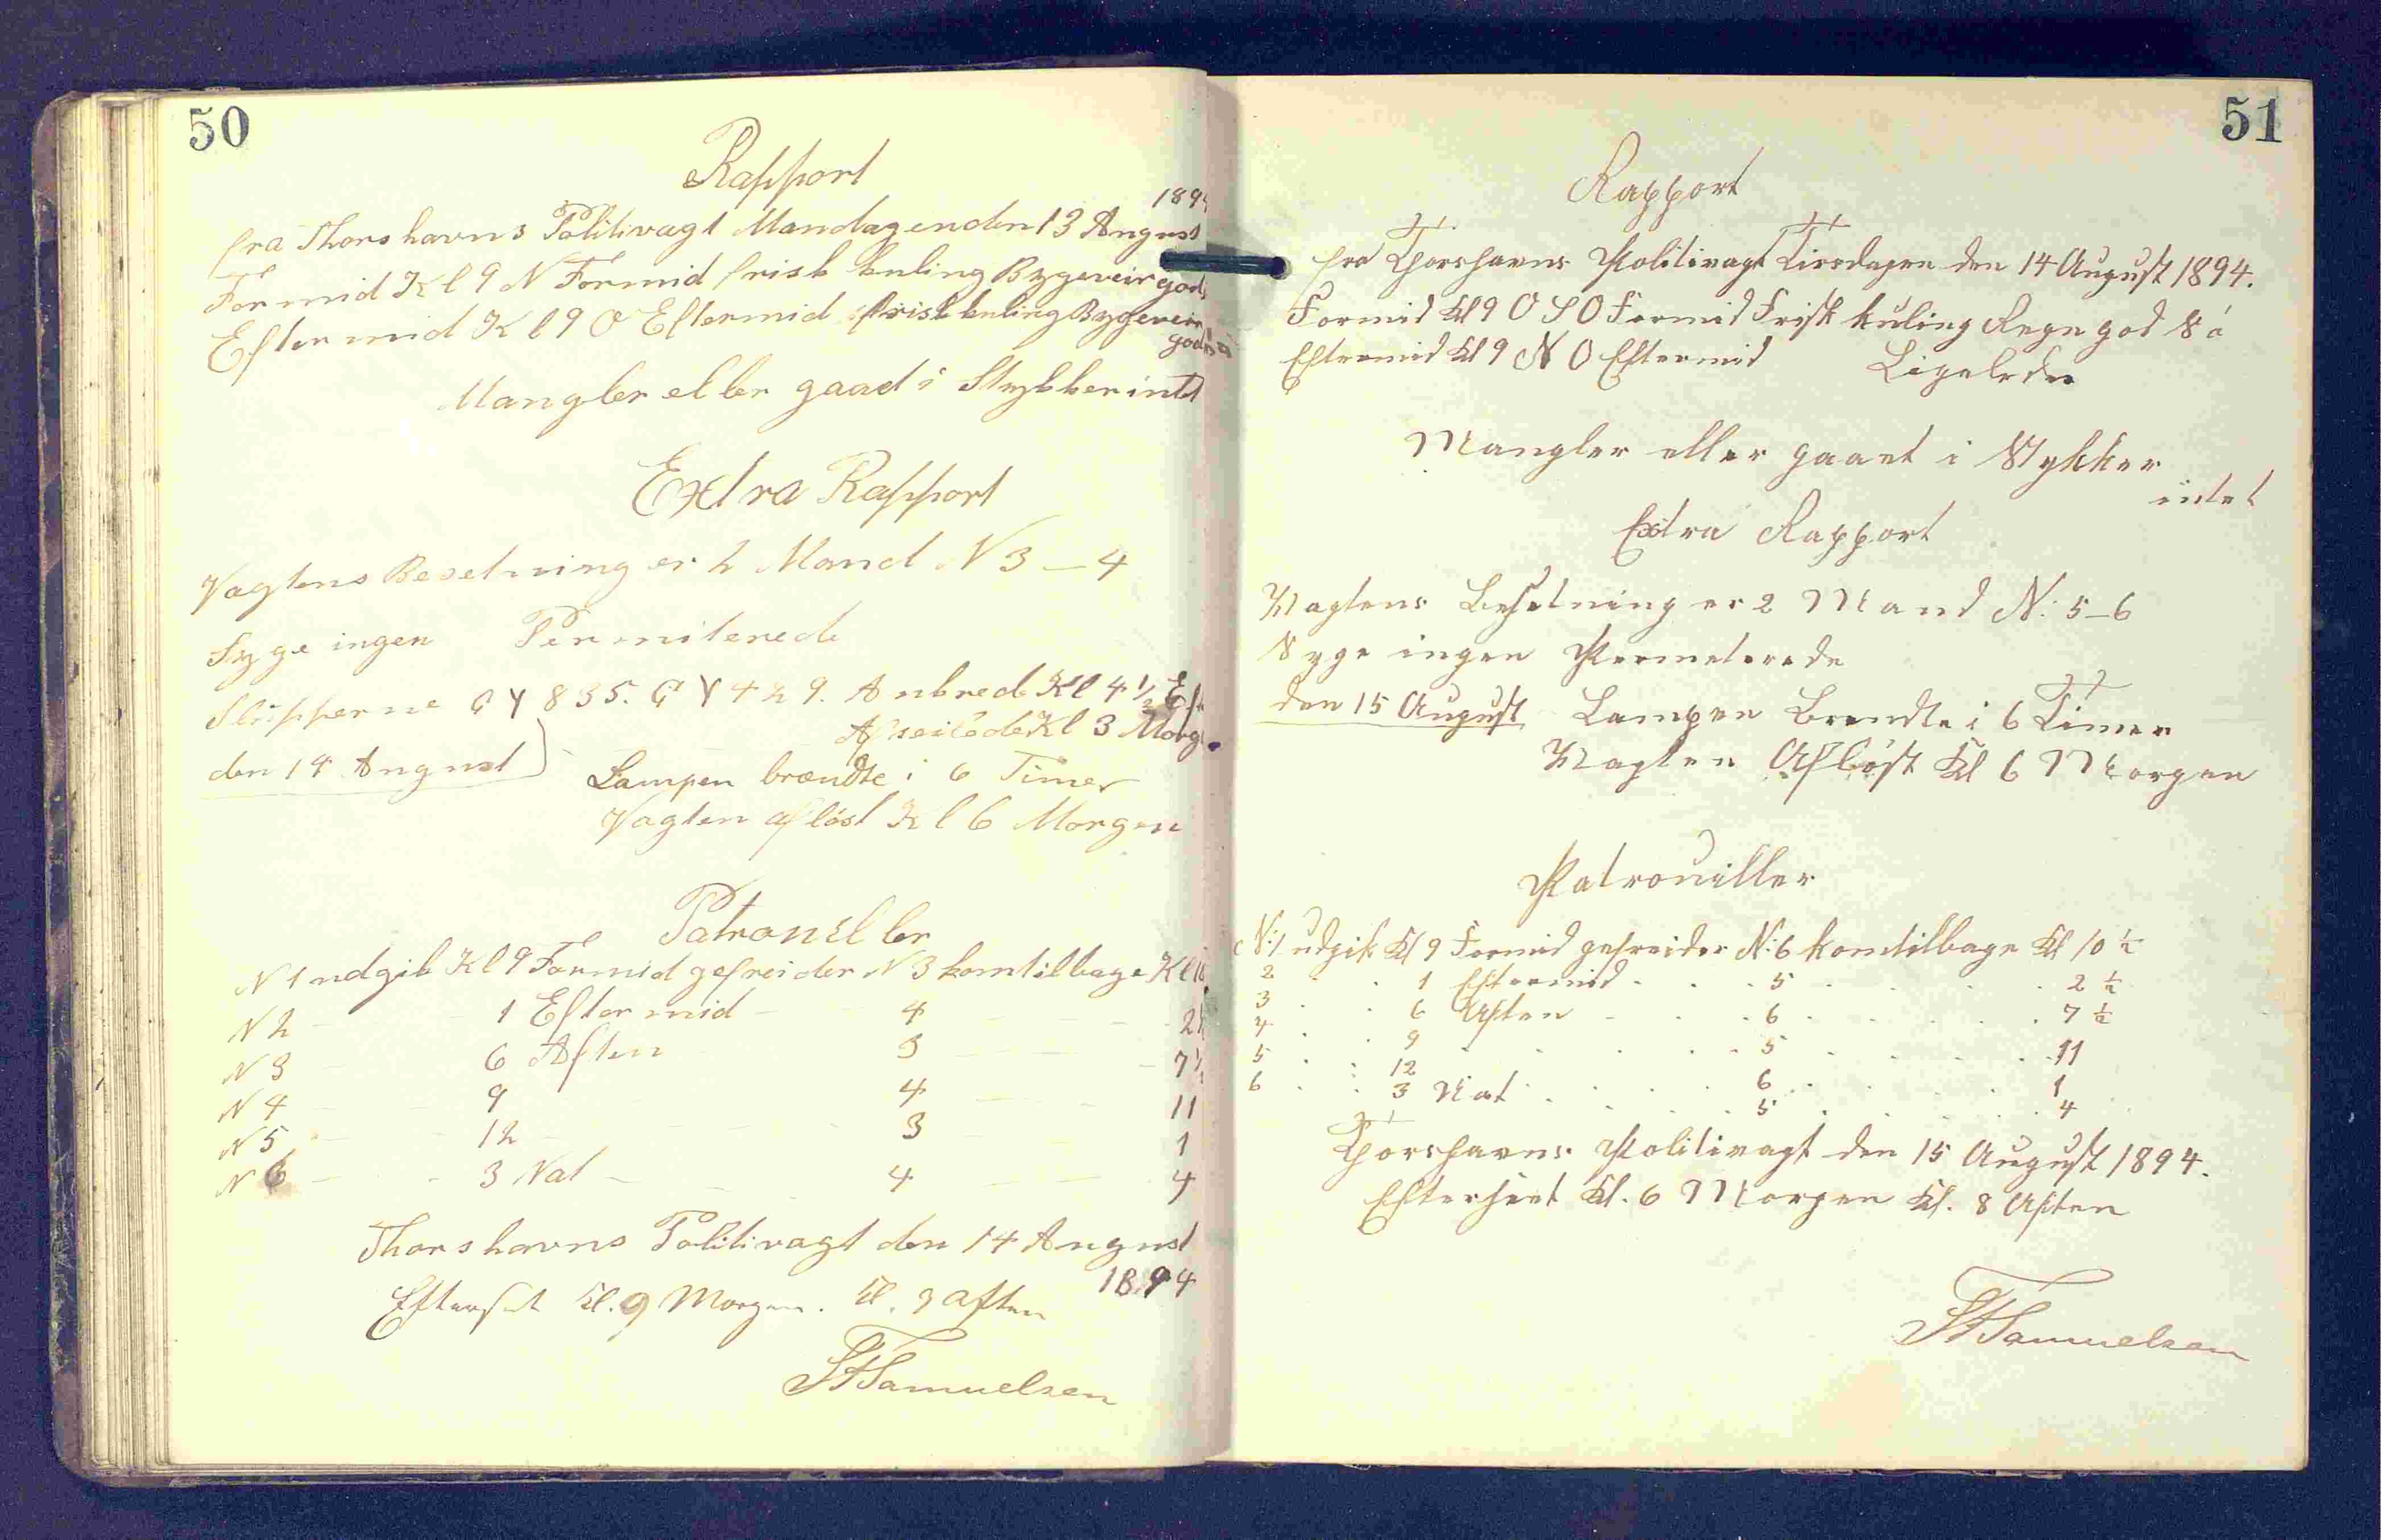 50
Rapport
1894
fra Thorshavns Politivagt Mandagen den 13 August
Formid Kl 9 N Formid frisk kuling Bygeveir god
Eftermid Kl 9 O Eftermid frisk kuling Bygeveir
god Sö
Mangler eller gaad i Stykker intet
Extra Rapport
Vagtens Besetning er 2 Mand N 3 – 4
Syge ingen Permiterede
Slupperne 835. 429. Ankrede Kl 4 1/2 Eft
Afseilede Kl 3 Morg
den 14 August Lampen brændte i 6 Timer
Vagten aflöst Kl 6 Morgen
Patrouller
N 1 udgik Kl 9 Formid gefreider N 3 kom tilbage Kl 10
N 2 1 Eftermid 4 2 1/2
N 3 6 Aften 3 7 1/2
N 4 9 4 11
N 5 12 3 1
N 6 3 Nat 4 4
Thorshavns Politivagt den 14 August
1894
Efterset Kl. 9 Morgen. Kl. 9 Aften
Samuelsen
51
Rapport
fra Thorshavns Politivagt Tirsdagen den 14 August 1894.
Formid Kl 9 O S O Formid Frisk kuling Regn god Sö
Eftermid Kl 9 N O Eftermid Ligeledes
Mangler eller gaaet i Stykker
intet
Extra Rapport
Vagtens Besetning er 2 Mand N: 5–6
Syge ingen Permeterede
den 15 August Lampen Brendte i 6 Timer
Vagten Aflöst Kl 6 Morgen
Patrouiller
N: 1 udgik Kl 9 Formid gefreider N: 6 kom tilbage Kl 10 1/2
2 . . 1 Eftermid . . . 5 . . . 2 1/2
3 . . 6 Aften . . . 6 . . . 7 1/2
4 . . 9 . . . 5 . . . 11
5 . . 12 . . . 6 . . . 1
6 . . 3 Nat . . . 5 . . . 4
Thorshavns Politivagt den 15 August 1894.
Efterseet Kl. 6 Morgen Kl. 8 Aften
Samuelsen